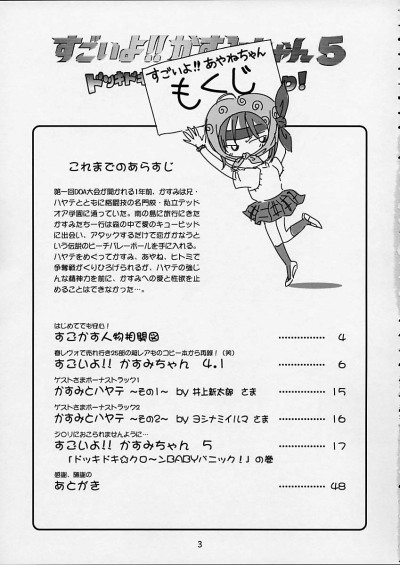 すごいよ!! かすみちゃん 5
ドッキドキ
!
すごいよ!! あやねちゃん
もくじ
これまでのあらすじ
第一回DOA大会が開かれる1年前、かすみは兄・
ハヤテとともに格闘技の名門校・私立デッド
オア学園に通っていた。南の島に旅行にきた
かすみたち一行は森の中で愛のキューピッド
に出会い、アタックするだけで恋がかなうと
いう伝説のビーチバレーボールを手に入れる。
ハヤテをめぐってかすみ、あやね、ヒトミで
争奪戦がくりひろげられるが、ハヤテの強じ
んな精神力を前に、かすみへの愛と性欲を止
めることはできなかった…。
はじめてでも安心!
すごかす人物相関図 ‥‥‥‥‥ 4
春レヴォで売れ行き25部の超レアものコピー本から再録!(笑)
すごいよ!! かすみちゃん 4.1 ‥‥‥‥‥ 6
ゲストさまボーナストラック1
かすみとハヤテ ～その1～ by 井上新太郎 さま ‥‥‥‥‥ 15
ゲストさまボーナストラック2
かすみとハヤテ ～その2～ by ヨシナミイルマ さま ‥‥‥‥‥ 16
ジ○リにおこられませんように…
すごいよ!! かすみちゃん 5 ‥‥‥‥‥ 17
「ドッキドキ☆クロ～ンBABYパニック!」の巻
感謝、陳謝の
あとがき ‥‥‥‥‥ 48
3